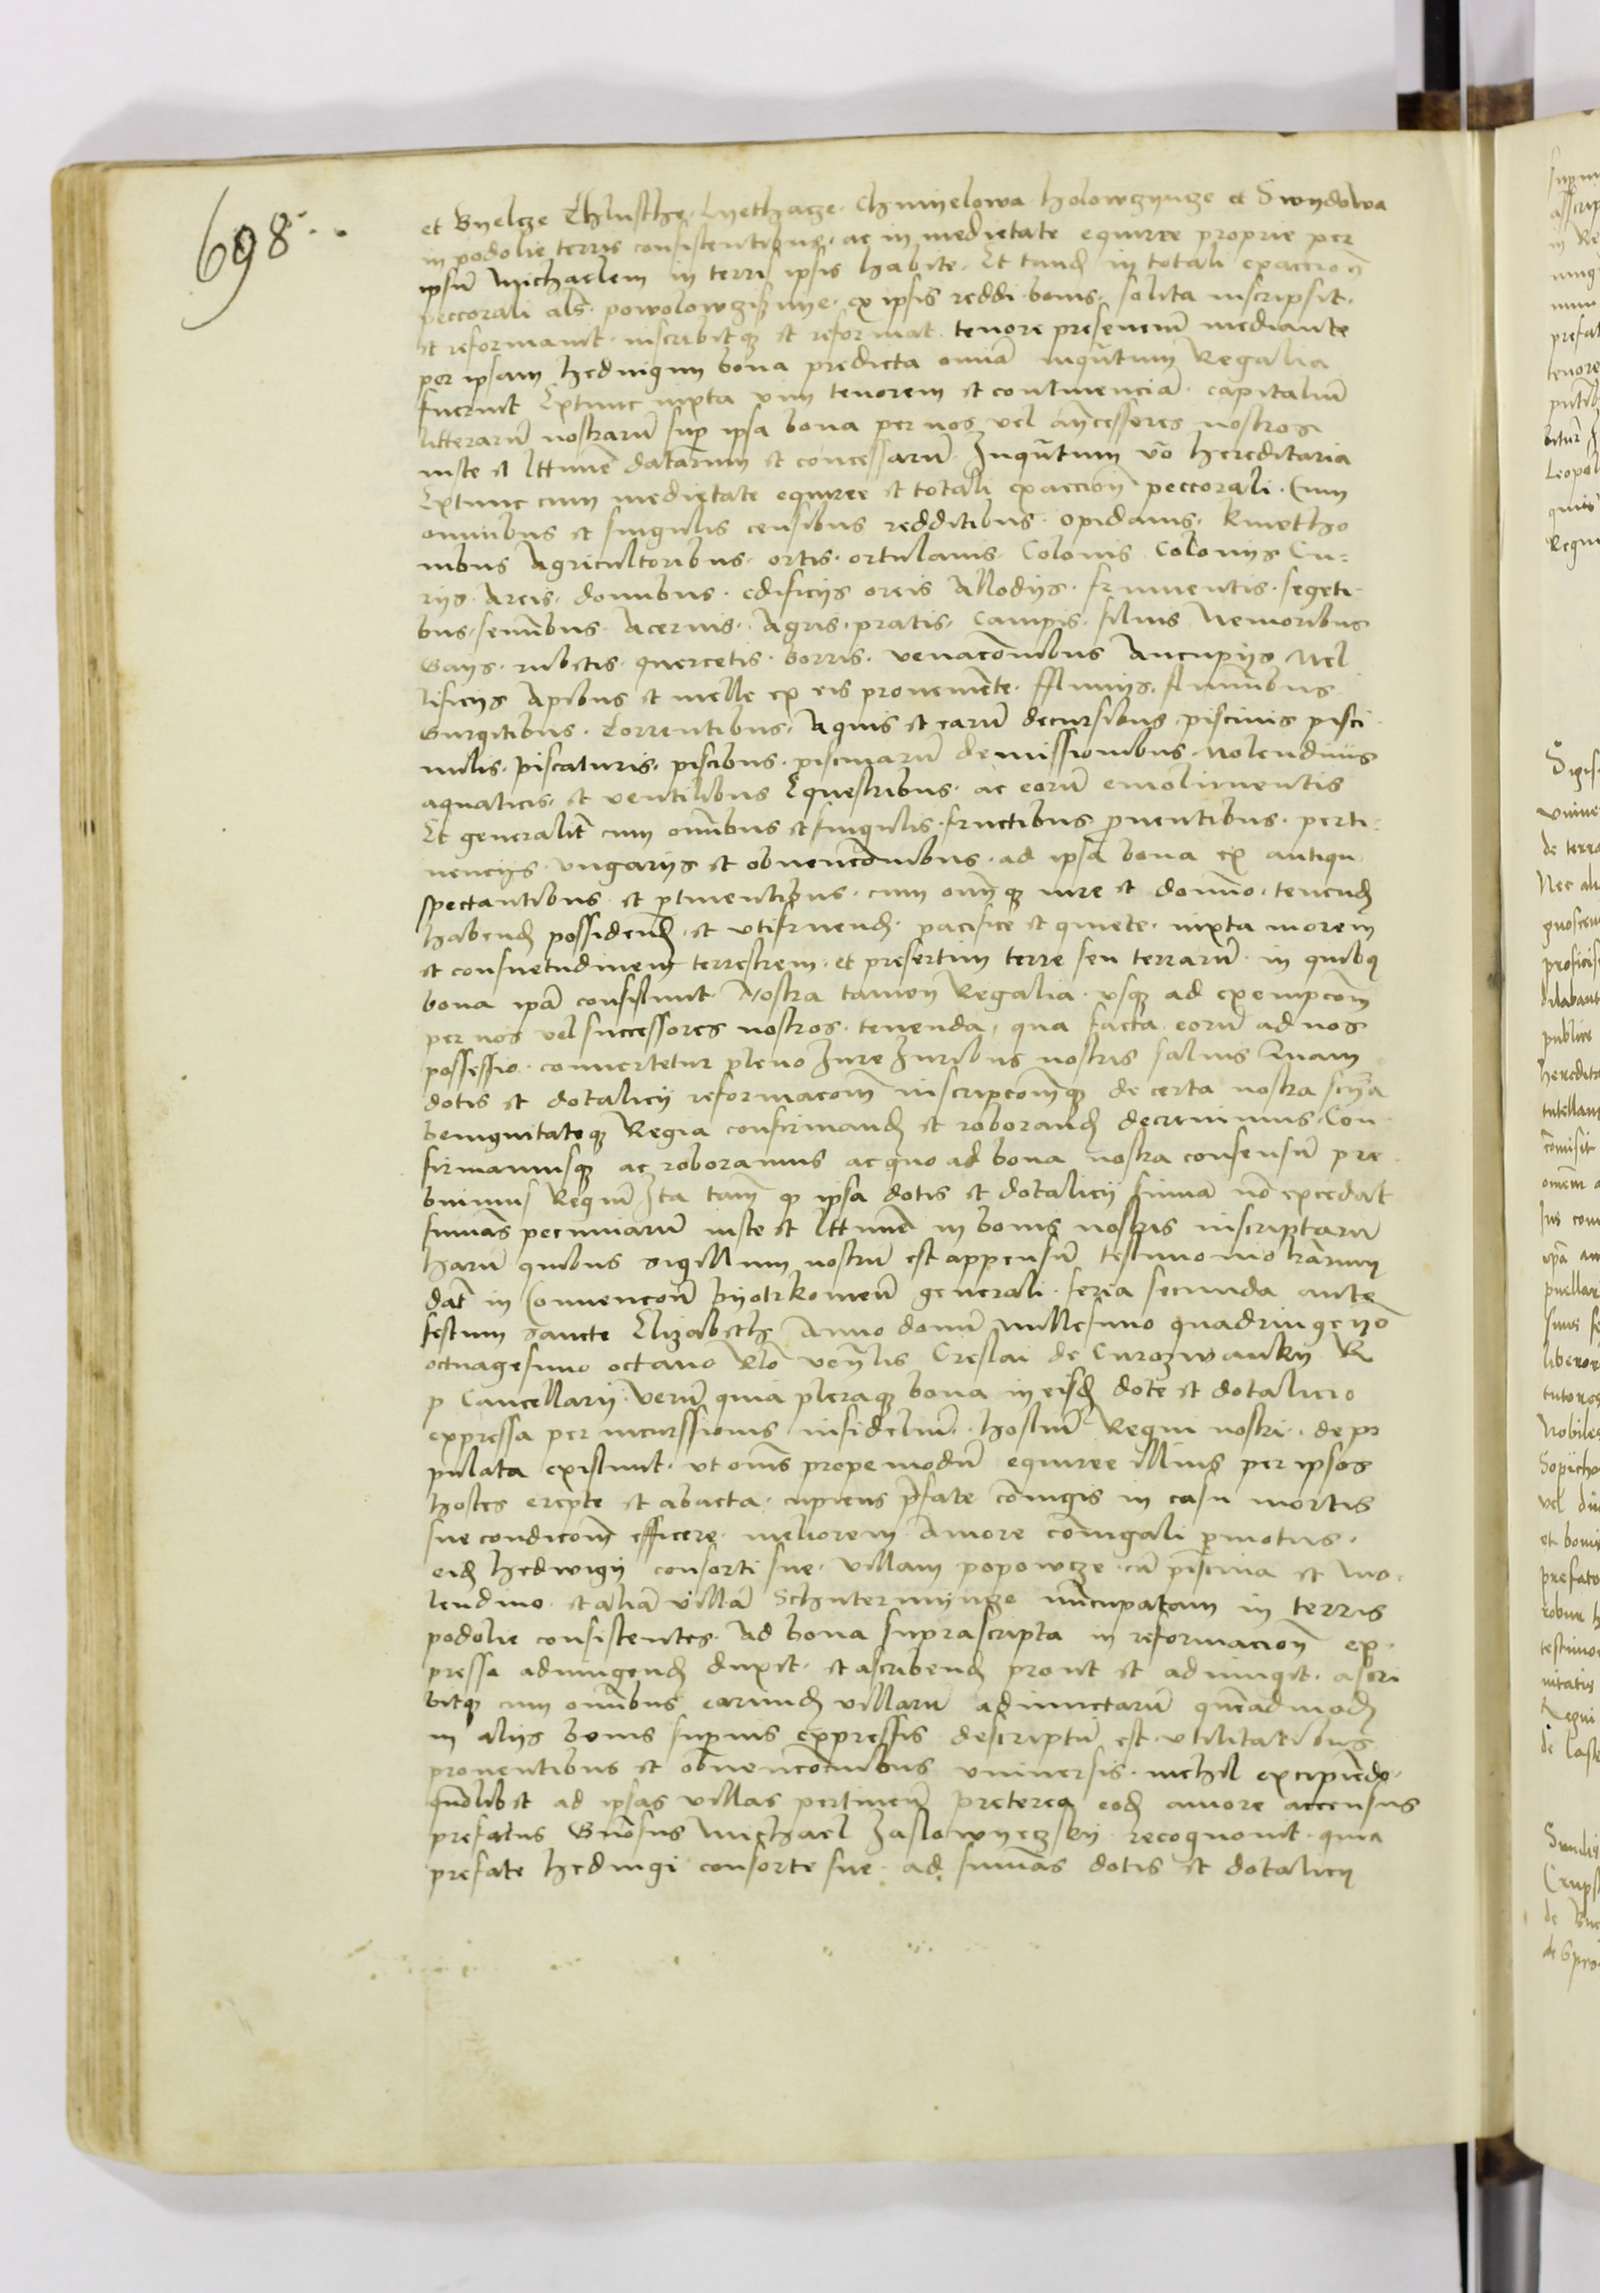 698
et Byelcze Thlusthe Lyethacze Chmyelowa holowczyncze et Swydowa
in podolie terris consistentibus ac in medietate equiree proprie per
ipsū Michaelem in terris ipsis habite Et tand in totali exaccion̄
peccorali als powolowczisnye ex ipsis reddi bonis solita inscripsit
et reformauit inscribitq; et reformat tenore presenciū mediante
per ipsam hedwigim bona predicta omīa inqūtum Regalia
fuerint Extunc iuxta vim tenorem et continenciā capitaliū
litterarū nostrarū sup ipsa bona per nos vel āncessores nostros
iuste et lttime datarum et concessarū Inqūtum vō hereditaria
Extunc cum medietate equiree et totali exaccion̄ peccorali Cum
omnibus et singulis censibus redditibus opidanis kmetho
nibus Agricultoribus ortis ortulanis Colonis Colonijs Cu=
rijs Areis domibus edificijs oreis Allodijs frumentis segeti
bus seminibus Acernis Agris pratis Campis siluis Nemoribus
Gayis rubetis quercetis borris venacōnibus Aucupijs Mel
lificijs Apibus et melle ex eis proueniente fluuijs fluminibus
Gurgitibus Torrentibus Aquis et earū decursibus piscinis pisci
nulis piscaturis piscibus piscinarū demissionibus Molendinis
aquaticis et ventilibus Equestribus ac eorū emolimentis
Et generalit̄ cum omibus et singulis fructibus p̄uentibus perti=
nencijs vngarijs et obuencōnibus ad ipsa bona ex antiquo
spectantibus et p̄tinentibus cum omiq; iure et dominio tenend
habend possidend et vtifruend pacifice et quiete iuxta morem
et consuetudinem terrestrem et presertim terre seu terrarū in quibus
bona ipā consistunt Nostra tamen Regalia vsq; ad exempcōm
per nos vel successores nostros tenenda qua facta eorū ad nos
possessio conuertetur pleno Iure Iuribus nostris saluis Quam
dotis et dotalicij reformacōm inscripcōmq; de certa nostra scīa
benignitateq; Regia confirmand et roborand decreuimus Con
firmamusq; ac roboramus ac quo ad bona nostra consensū pre
buimus Regiū Ita tam̄ q ipsa dotis et dotalicij summa nō excedat
summās pecuniarū iuste et lttime in bonis nostris inscriptarū
harū quibus sigillum nostrū est appensū testimonio lrarum
dat̄ in Conuencōn Pyotrkowien̄ generali feria secunda ante
festum sancte Elizabeth Anno domī Millesimo quadringen̄o
octuagesimo octauo Rlō ven̄lis Creslai de Curozwanky R
p Cancellarij Verū quia pleraq; bona in eisd dote et dotalicio
expressa per incurssionis infideliū hostiū Regni nostri depo
pulata existunt vt om̄s propemodū equiree illius per ipsos
hostes erepte et abacta cupiens p̄fate cōniugis in casu mortis
sue condicōm efficere meliorem Amore cōniugali p̄motus
eid hedwigi consorti sue villam popowcze cū piscina et mo=
lendino et aliā villā Schutermyncze nūncupatam in terris
podolie consistentes Ad bona suprascripta in reformacion̄ ex
pressa adiungend duxit et ascribend prout et adiungit ascri
bitq; cum omibus earund villarū adiunctarū quēadmod
in alijs bonis superius expressis descriptū est vtilitatibus
prouentibus et obuencōnibus vniuersis nichil excipiendo
quōlibet ad ipsas villas pertinen̄ Preterea eod amore accensus
prefatus Gn̄osus Michael Jaslowyeczsky recognouit quia
prefate hedwigi consorte sue ad summās dotis et dotalicij